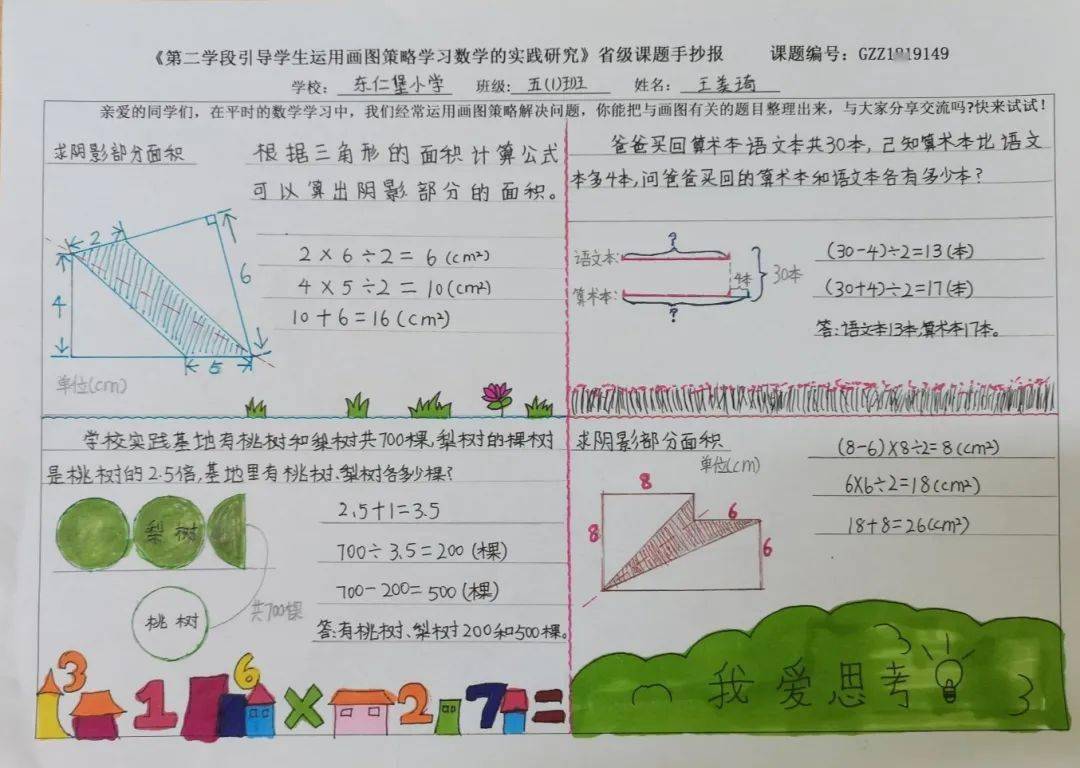 《第二学段引导学生运用画图策略学习数学的实践研究》省级课题手抄报 课题编号：GZZ1819149
学校： 东仁堡小学 班级： 五(1)班 姓名： 王姜琦
亲爱的同学们，在平时的数学学习中，我们经常运用画图策略解决问题，你能把与画图有关的题目整理出来，与大家分享交流吗?快来试试！
求阴影部分面积
根据三角形的面积计算公式
可以算出阴影部分的面积。
2
6
4
5
单位(cm)
2×6÷2=6(cm²)
4×5÷2=10(cm²)
10+6=16(cm²)
爸爸买回算术本语文本共30本，已知算术本比语文
本多4本，问爸爸买回的算术本和语文本各有多少本？
?
语文本：
4本
30本
算术本：
?
(30-4)÷2=13(本)
(30+4)÷2=17(本)
答：语文本13本，算术本17本。
学校实践基地有桃树和梨树共700棵，梨树的棵树
是桃树的2.5倍，基地里有桃树、梨树各多少棵？
梨树
桃树
共700棵
2.5+1=3.5
700÷3.5=200(棵)
700-200=500(棵)
答：有桃树、梨树200和500棵。
求阴影部分面积
单位(cm)
8
8
6
6
(8-6)×8÷2=8(cm²)
6×6÷2=18(cm²)
18+8=26(cm²)
3 1 6 × 2 7 =
我爱思考
3
3